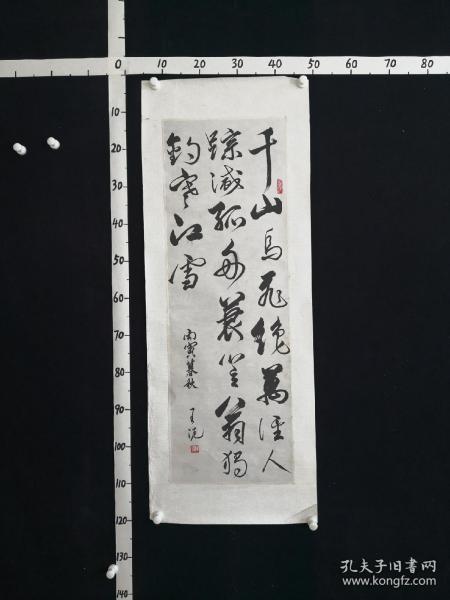 千山鸟飛绝萬径人
踪滅孤舟蓑笠翁獨
钓寒江雪
丙寅暮秋
0 10 20 30 40 50 60 70 80
10
20
30
40
50
60
70
80
90
100
110
120
130
140
孔夫子旧书网
www.kongfz.com